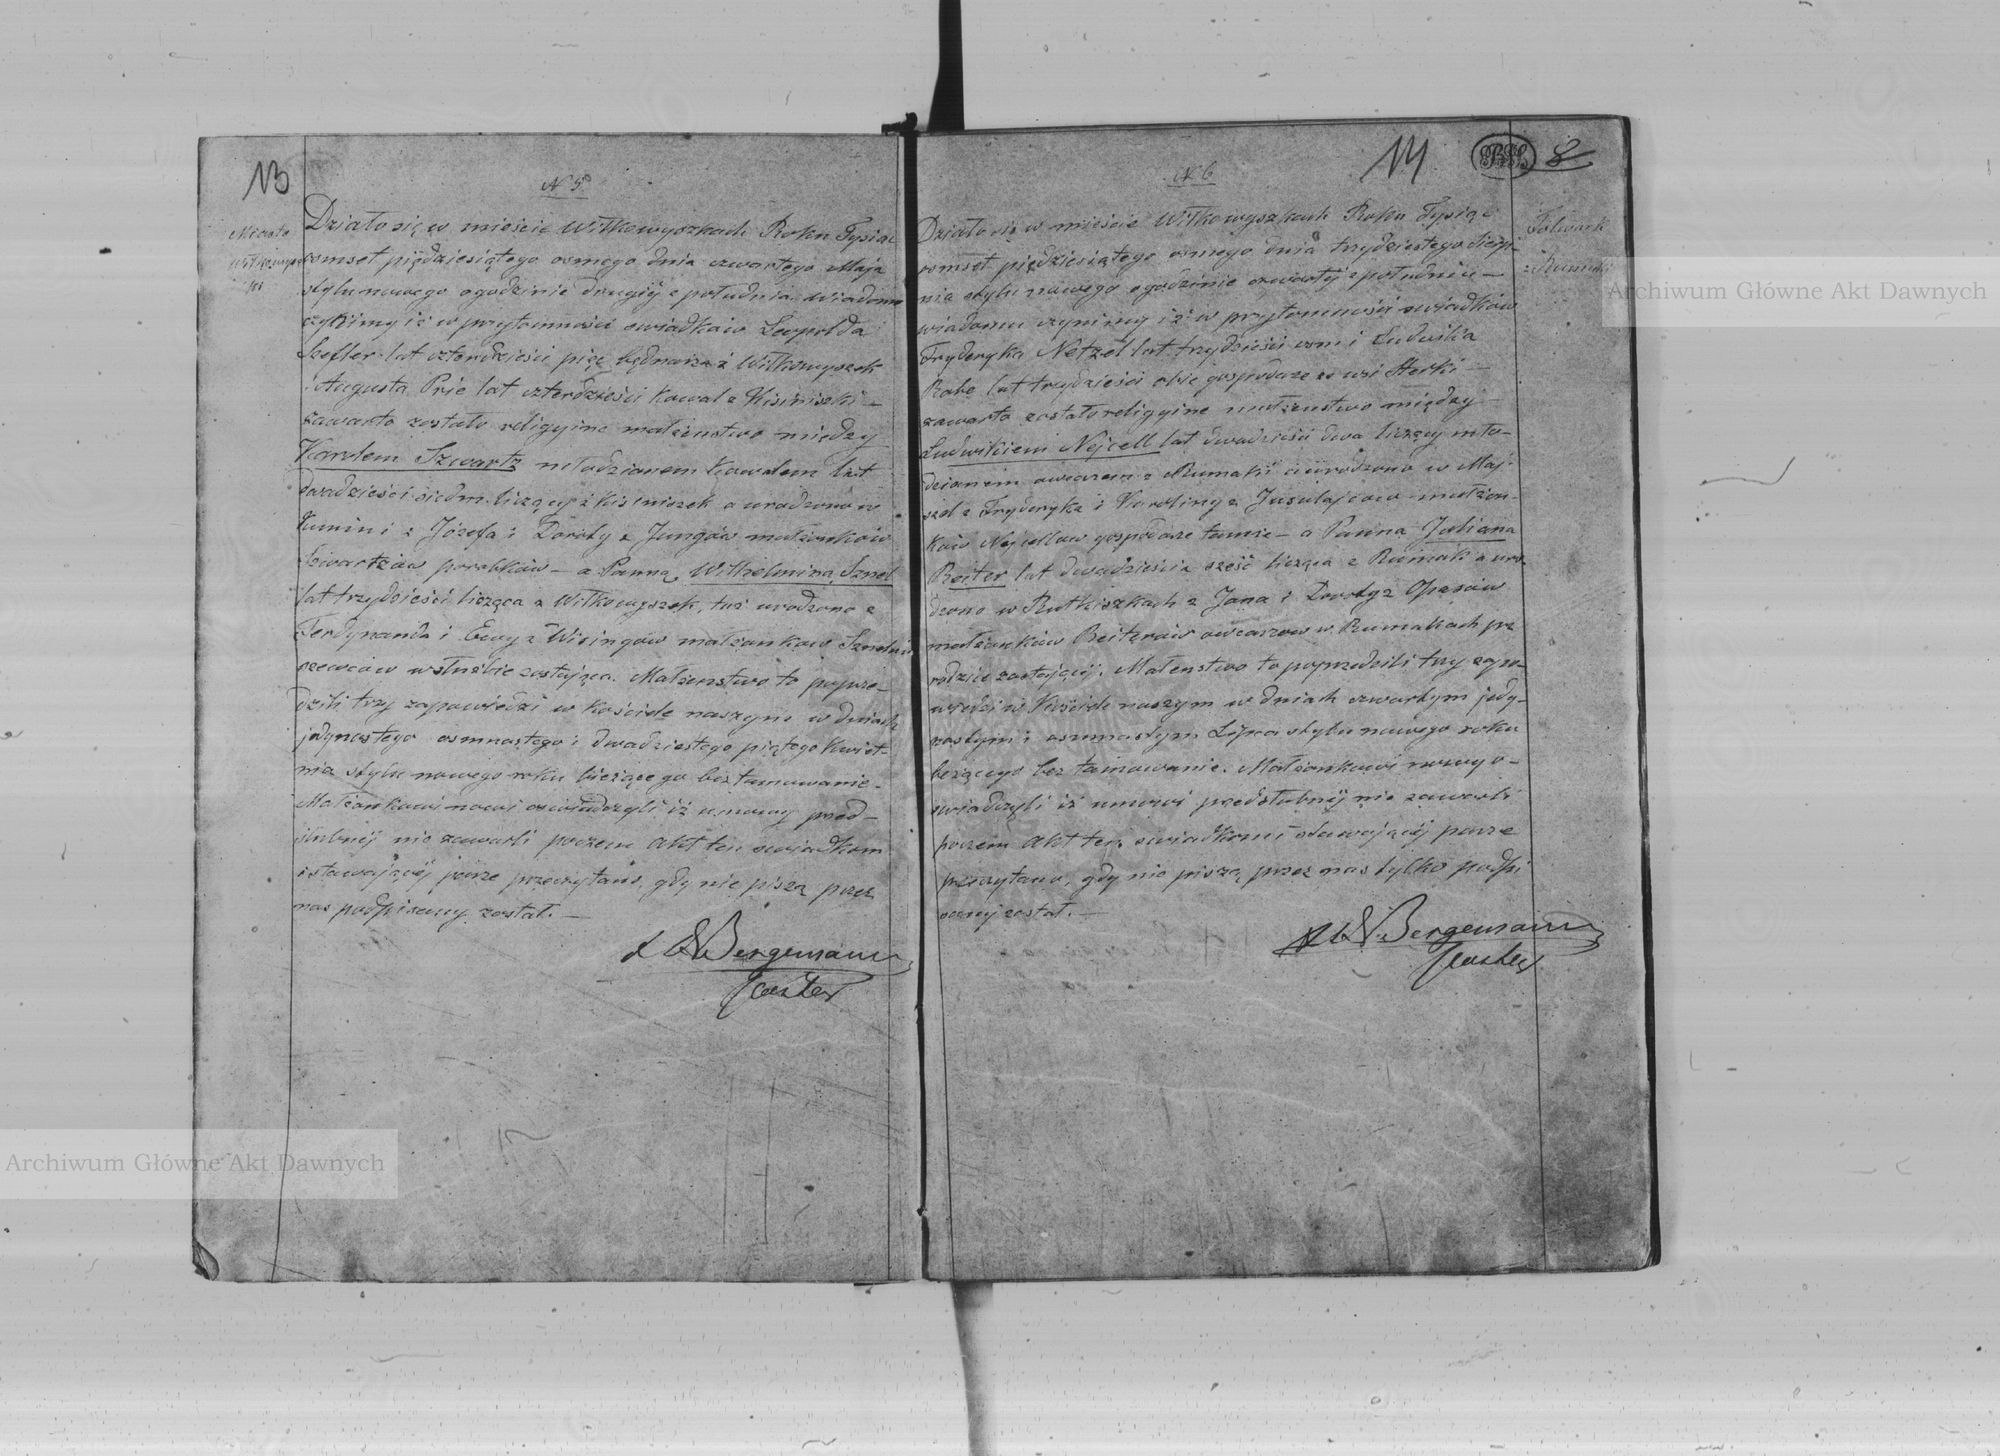 13
N 5
Miasto
Działo się w mieście Wiłkowyszkach Roku Tysiąc
osmset pięćdziesiątego osmego dnia czwartego Maja
stylu nowego o godzinie drugiéj z południa. Wiadomo
czynimy iż w przytomności swiadków Leopolda
Szefler lat czterdzieści pięć bednarza z Wiłkowyszek
i Augusta Prie lat czterdzieści kowal z Kisiniszki —
zawarte zostało religijne małżeństwo między
Karolem Szwartz młodzianem kowalem lat
dwadzieścia siedm liczący z Kisiniszek a urodzony w
z Józefa i Doroty z Jungów małżonków
Szwartzów parobków — a Panną Wilhelminą Sznel
lat trzydzieści licząca z Wiłkowyszek, tuż urodzona z
Ferdynanda i Ewy z Wisingów małżonków
szewców w służbie zostająca. Małżenstwo to poprze-
dzili trzy zapowiedzi w Kościele naszym w dniach
jedynastego osmnastego i dwadziestego piątego Kwiet-
nia stylu nowego roku bieżącego bez tamowanie.
Małżonkowi nowi oswiadczyli iż umowy przed-
slubnéj nie zawarli poczem akt ten swiadkom
i stawającéj parze przeczytano, gdy nie piszą przez
nas podpisany został. —
Bergemann
Pastor
14
8
N 6
Folwark
Rumaki
Działo się w mieście Wiłkowyszkach Roku Tysiąc
osmset pięćdziesiątego osmego dnia trzydziestego Sierp-
nia stylu nowego o godzinie czwartéj z południu —
wiadomo czynimy iż w przytomności swiadków
Fryderyka Netzel lat trzydzieści osm i Ludwika
lat trzydzieści obie gospodarze ze wsi Sterki —
zawarte zostało religijne małżenstwo między —
Ludwikiem Nejcell lat dwadzieścia dwa liczący mło-
dzianem owczarem z Rumaki a urodzono w Maj-
z Fryderyka i Karoliny z małżon-
ków Nejcellow gospodarze tamże — a Panna Juliana
Reiter lat dwadzieścia sześć licząca z Rumaki a uro-
dzona w Rutkiszkach z Jana i Doroty z
małżonków Reiterów owczarzow w Rumakach prz
rodzice zostającéj. Małenstwo to poprzedzili trzy zapo-
wiedzi w Kościele naszym w dniach czwartym jedy-
nastym i osmnastym Lipca stylu nowego roku
bezącego bez tamowanie. Małżonkowi nowi o-
swiadczyli iż umowi przedslubnéj nie zawarli
poczem akt ten swiadkomi stawającéj parze
przeczytano, gdy nie piszą, przez nas tylko podpi
sany został. —
Bergemann
Pastor
Archiwum Główne Akt Dawnych
Archiwum Główne Akt Dawnych